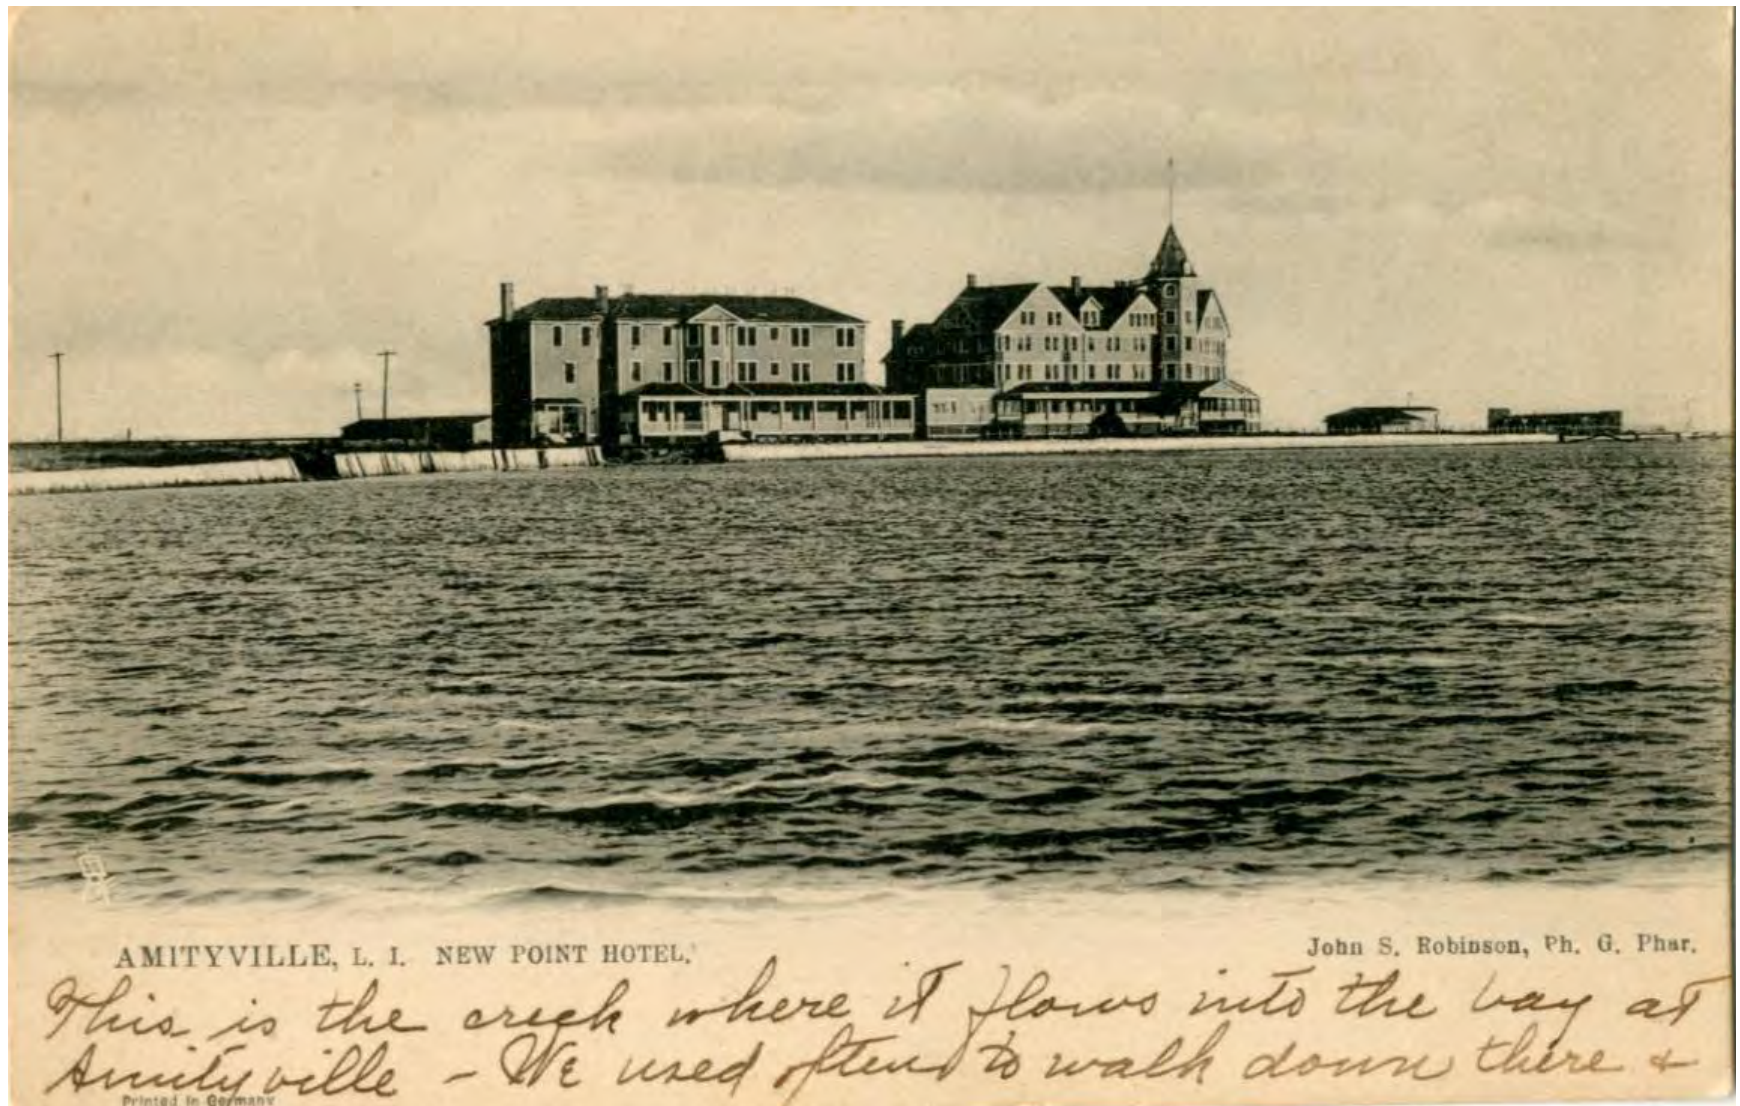 AMITYVILLE, L. I. NEW POINT HOTEL.
John S. Robinson, Ph. G. Phar.
This is the creek where it flows into the bay at
Amityville - We used often to walk down there &
Printed in Germany